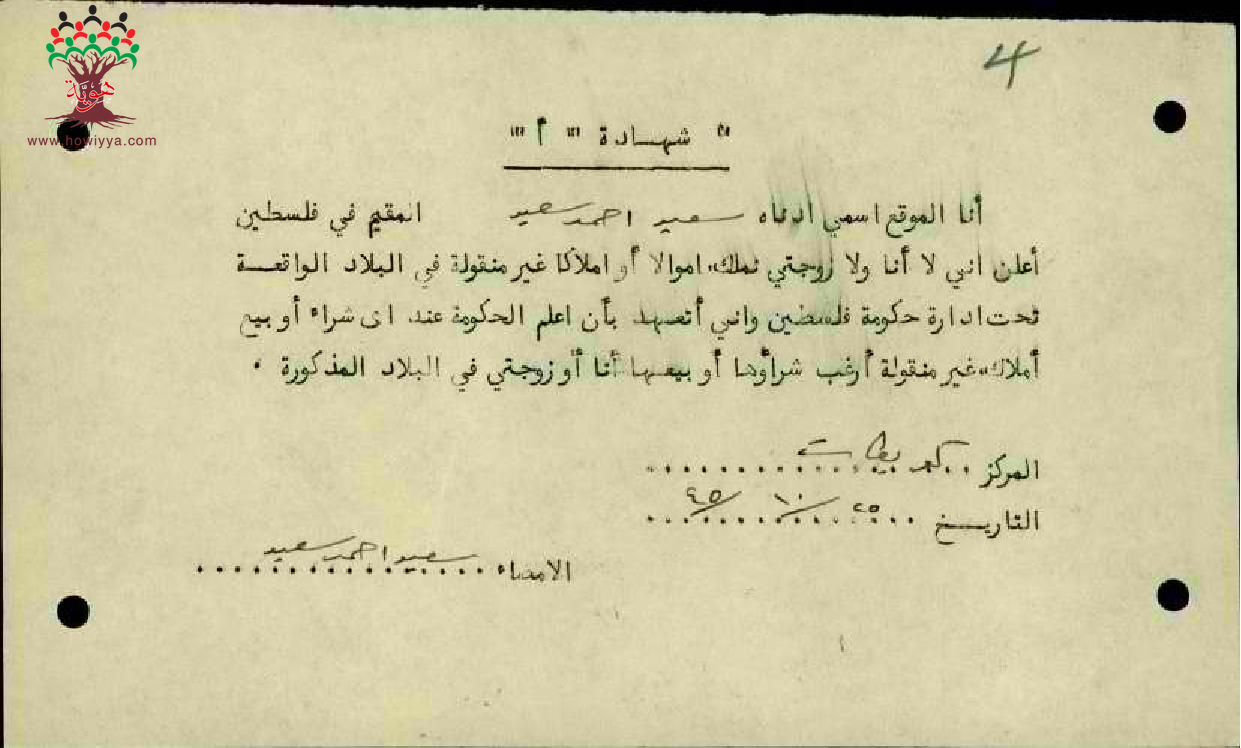 هوية
www.howiyya.com
4
" شهادة " أ ""
أنا الموقع اسمي أدناه سعيد احمد سعيد المقيم في فلسطين
أعلن اني لا أنا ولا زوجتي نملك اموالا أو املاكا غير منقولة في البلاد الواقعة
تحت ادارة حكومة فلسطين واني أتعهد بأن اعلم الحكومة عند اى شراء أو بيع
أملاك غير منقولة أرغب شراؤها أو بيعها أنا أو زوجتي في البلاد المذكورة .
المركز
التاريخ ٢٥/١٠/٤٥
الامضاء سعيد احمد سعيد